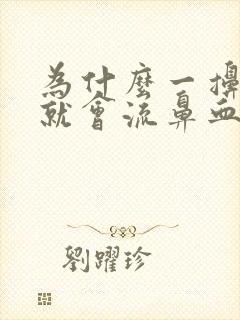 為什麼一
就會流鼻血
劉躍珍